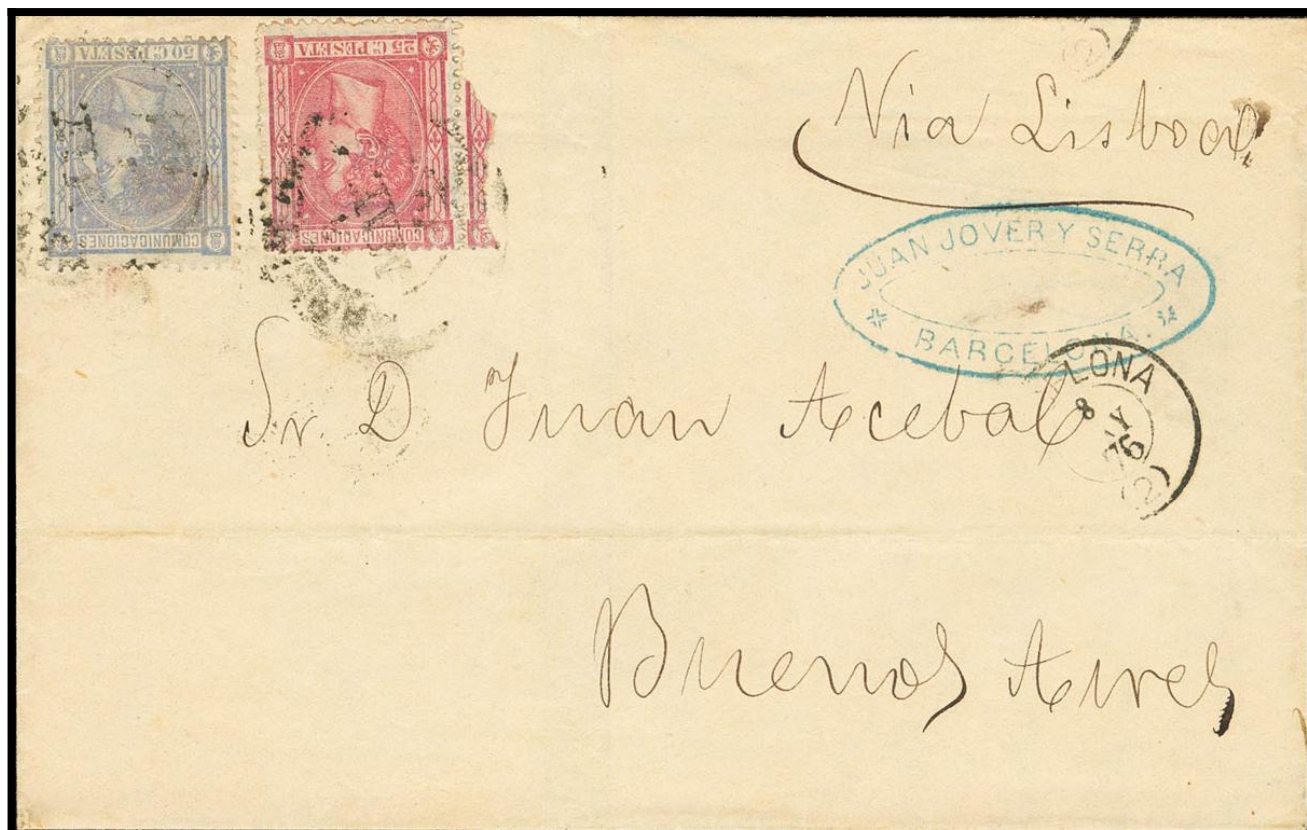 50 C. PESETA
COMUNICACIONES
25 C. PESETA
COMUNICACIONES
Via Lisboa
JUAN JOVER Y SERRA
BARCELONA
LONA
8
76
(2)
Sr. D Juan Acebal
Buenos Aires